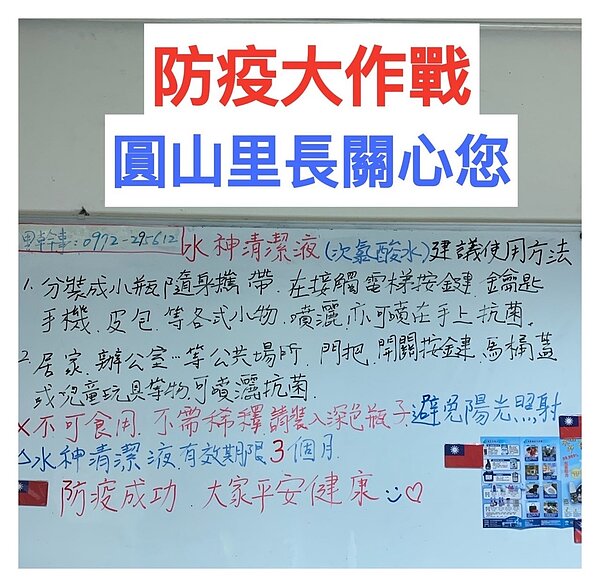 防疫大作戰
圓山里長關心您
里幹事:0972-295612
水神清潔液(次氯酸水)建議使用方法
1. 分裝成小瓶隨身攜帶.在接觸電梯按鍵.鑰匙
手機.皮包.等各式小物.噴灑.亦可噴在手上抗菌.
2. 居家.辦公室…等公共場所.門把.開關按鍵.馬桶蓋
或兒童玩具等物.可噴灑抗菌.
×不可食用.不需稀釋.請裝入深色瓶子.避免陽光照射
△水神清潔液.有效期限3個月.
防疫成功.大家平安健康